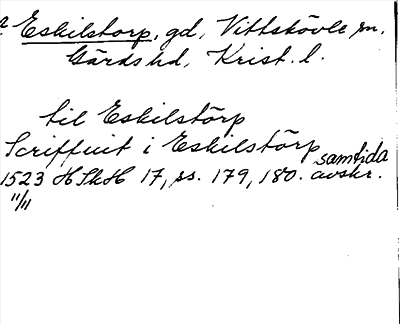 Eskilstorp, gd, Vittskövle sn,
Gärds hd, Krist. l.
til Eskilstörp
Scriffuit i Eskilstörp
1523 HSkH 17, ss. 179, 180. samtida avskr.
11/11